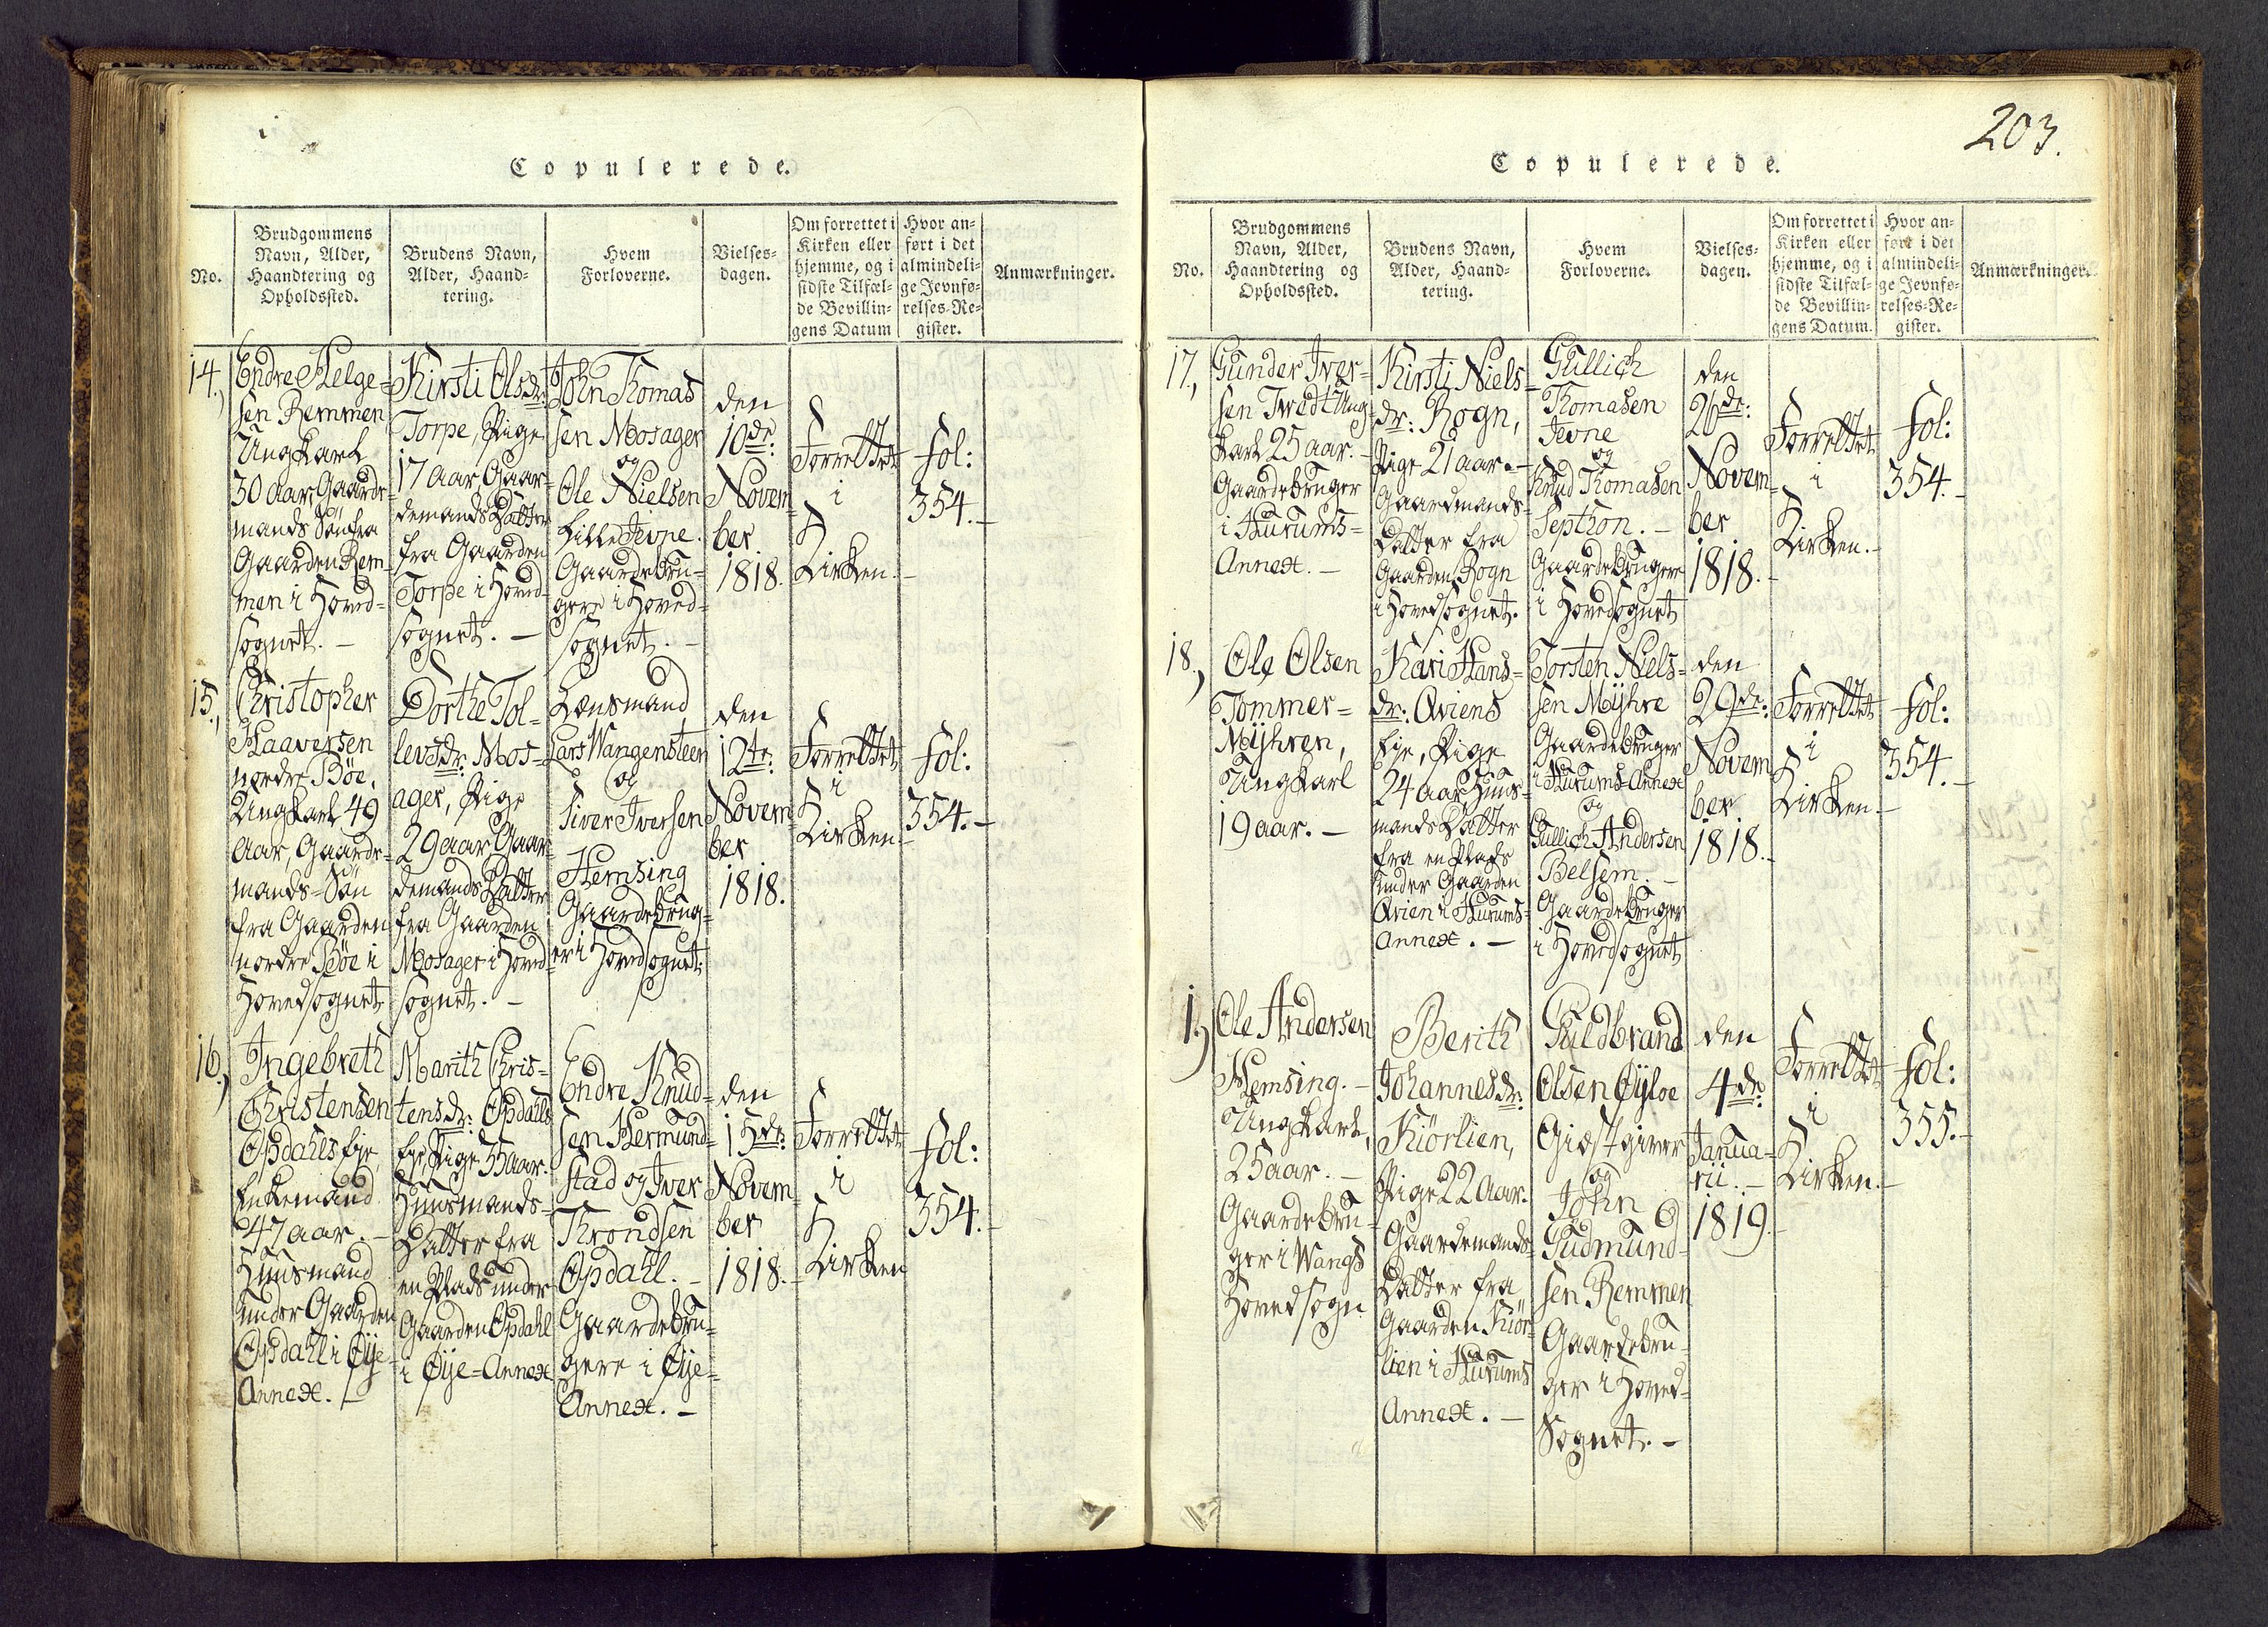 Copulerede.
No.
Brudgommens
Navn, Alder,
Haandtering og
Opholdssted.
Brudens Navn,
Alder, Haand-
tering.
Hvem
Forloverne.
Vielses-
dagen.
Om forrettet i
Kirken eller
hjemme, og i
sidste Tilfæl-
de Bevillin-
gens Datum
Hvor an-
ført i det
almindeli-
ge Jevnfø-
relses-Re-
gister.
Anmærkninger.
14.,
Endre Helge-
sen Remmen
Ungkarl
30 aar, Gaarde-
mands Søn fra
Gaarden Rem-
men i Hoved-
sognet. -
Kirsti Olsdr:
Torpe, Pige
17 aar, Gaar-
demands Datter
fra Gaarden
Torpe i Hoved-
sognet. -
John Thomas
sen Mosager
og
Ole Nielsen
Lille Jevne.
Gaardebru-
gere i Hoved-
sognet. -
den
10de:
Novem-
ber
1818.
Forrettet
i
Kirken. -
fol:
354. -
15.,
Christopher
Haaversen
nordre Böe,
Ungkarl 49
Aar, Gaarde-
mands-Søn
fra Gaarden
nordre Böe i
Hovedsognet
Dorthe Tol-
levsdr: Mos-
ager, Pige
29 aar, Gaar-
demands Datter
fra Gaarden
Mosager i Hoved-
sognet. -
Lensmand
Lars Wangensteen
og
Siver Iversen
Hemsing
Gaardebrug-
er i Hovedsognet.
den
12te:
Novem-
ber
1818.
Forrettet
i
Kirken. -
fol:
354. -
16.,
Ingebreth
Christensen
Opdahls Eje,
Enkemand
47 aar. -
Huusmand
under Gaarden
Opdahl i Øye-
Annex. -
Marith Chris-
tensdr: Opdahls
Eje, Pige 35 aar.
Huusmands-
Datter fra
en Plads under
Gaarden Opdahl
i Øye-Annex
Endre Knud-
sen Hermund-
stad og Iver
Throndsen
Opdahl. -
Gaardebru-
gere i Øye-
Annex. -
den
15de:
Novem-
ber
1818. -
Forrettet
i
Kirken
fol:
354. -
203.
Copulerede.
No.
Brudgommens
Navn, Alder,
Haandtering og
Opholdssted.
Brudens Navn,
Alder, Haand-
tering.
Hvem
Forloverne.
Vielses-
dagen.
Om forrettet i
Kirken eller
hjemme, og i
sidste Tilfæl-
de Bevillin-
gens Datum.
Hvor an-
ført i det
almindeli-
ge Jevnfø-
relses-Re-
gister.
Anmærkninger.
17.,
Gunder Iver-
sen Twedt Ung-
karl 25 aar. -
Gaardebruger
i Hurums-
Annex. -
Kirsti Niels-
dr: Rogn,
Pige 21 aar. -
Gaardmands-
Datter fra
Gaarden Rogn
i Hovedsognet.
Gullich
Thomasen
Jevne
og
Knud Thomasen
Septhon. -
Gaardebrugere
i Hovedsognet
den
26de:
Novem-
ber
1818. -
Forrettet
i
Kirken. -
fol:
354. -
18.,
Ole Olsen
Tommer-
Myhren,
Ungkarl
19 aar. -
Kari Hans-
dr: Qviens
Eje, Pige
24 aar Huus-
mands Datter
fra en Plads
under Gaarden
Qvien i Hurums-
Annex. -
Torsten Niels-
sen Myhre
Gaardebruger
i Hurums-Annex
og
Gullich Andersen
Belsem. -
Gaardebruger
i Hovedsognet
den
29de:
Novem
ber
1818. -
Forrettet
i
Kirken. -
fol:
354. -
1.,
Ole Andersen
Hemsing. -
Ungkarl,
25 aar. -
Gaardebru-
ger i Wangs
Hovedsogn
Berith
Johannesdr:
Kiörlien,
Pige 22 Aar.
Gaardemands-
Datter fra
Gaarden Kiör-
lien i Hurums
Annex. -
Guldbrand
Olsen Øyloe
Giæstgiver
og
John
Gudmund-
sen Remmen
Gaardebru-
ger i Hoved-
Sognet. -
den
4de:
Janua-
rii. -
1819. -
Forrettet
i
Kirken. -
fol:
355. -